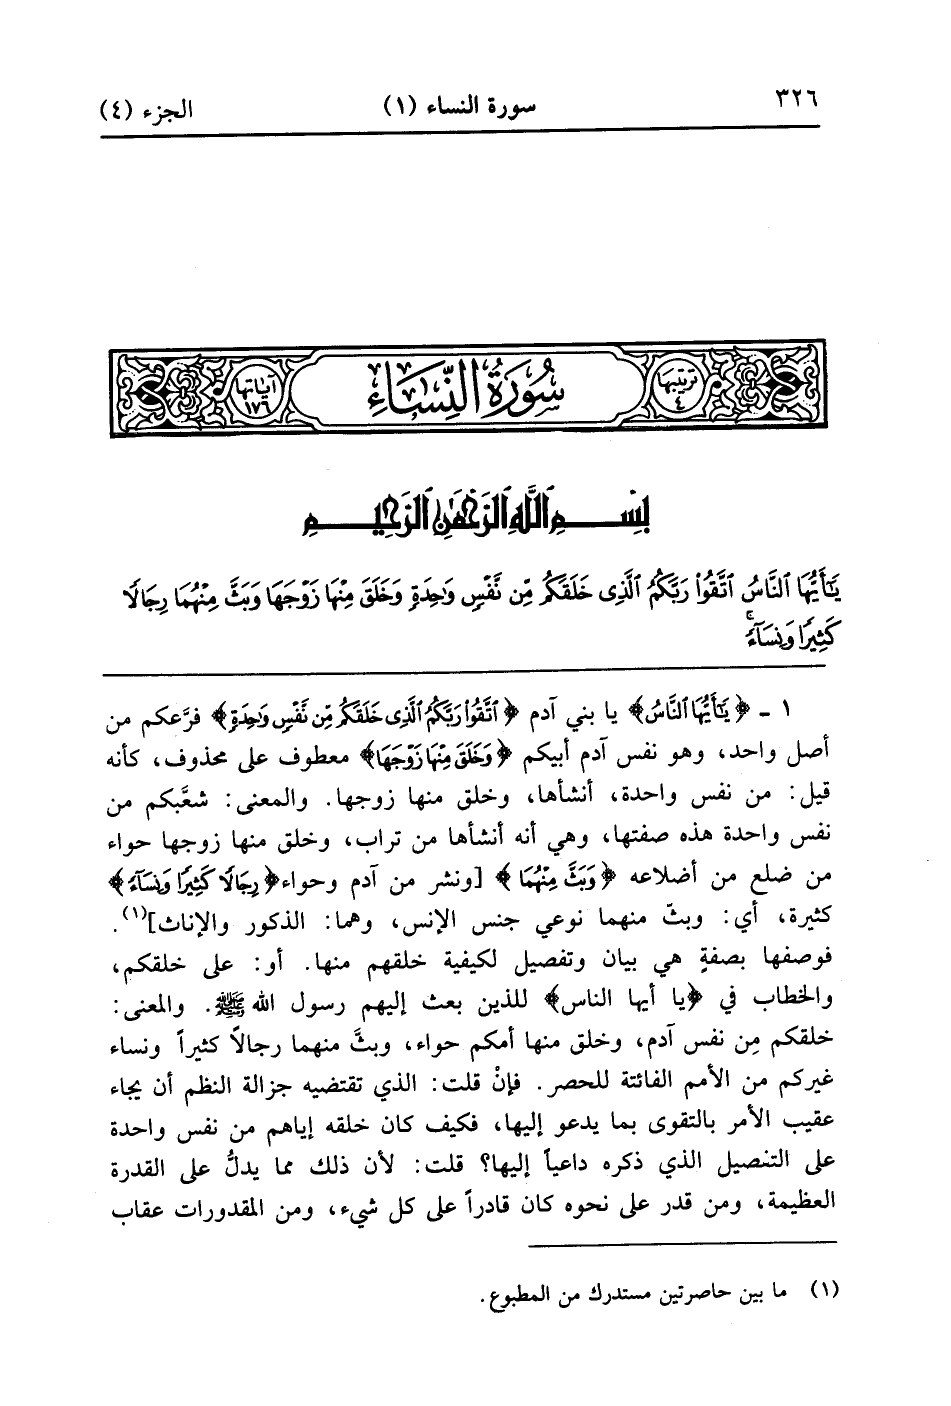 ٣٢٦ سورة النساء (١) الجزء (٤)
ترتيبها ٤ سُورَةُ النِّسَاءِ آياتها ١٧٦
بِسْمِ ٱللَّهِ ٱلرَّحْمَٰنِ ٱلرَّحِيمِ
يَٰٓأَيُّهَا ٱلنَّاسُ ٱتَّقُوا۟ رَبَّكُمُ ٱلَّذِى خَلَقَكُم مِّن نَّفْسٍ وَٰحِدَةٍ وَخَلَقَ مِنْهَا زَوْجَهَا وَبَثَّ مِنْهُمَا رِجَالًا
كَثِيرًا وَنِسَآءً ۚ
١ - ﴿يَٰٓأَيُّهَا ٱلنَّاسُ﴾ يا بني آدم ﴿ٱتَّقُوا۟ رَبَّكُمُ ٱلَّذِى خَلَقَكُم مِّن نَّفْسٍ وَٰحِدَةٍ﴾ فرَّعكم من
أصل واحد، وهو نفس آدم أبيكم ﴿وَخَلَقَ مِنْهَا زَوْجَهَا﴾ معطوف على محذوف، كأنه
قيل: من نفس واحدة، أنشأها، وخلق منها زوجها. والمعنى: شعَّبكم من
نفس واحدة هذه صفتها، وهي أنه أنشأها من تراب، وخلق منها زوجها حواء
من ضلع من أضلاعه ﴿وَبَثَّ مِنْهُمَا﴾ [ونشر من آدم وحواء ﴿رِجَالًا كَثِيرًا وَنِسَآءً﴾
كثيرة، أي: وبثّ منهما نوعي جنس الإنس، وهما: الذكور والإناث](١).
فوصفها بصفةٍ هي بيان وتفصيل لكيفية خلقهم منها. أو: على خلقكم،
والخطاب في ﴿يا أيها الناس﴾ للذين بعث إليهم رسول الله ﷺ. والمعنى:
خلقكم مِن نفس آدم، وخلق منها أمكم حواء، وبثَّ منهما رجالاً كثيراً ونساء
غيركم من الأمم الفائتة للحصر. فإنْ قلت: الذي تقتضيه جزالة النظم أن يجاء
عقيب الأمر بالتقوى بما يدعو إليها، فكيف كان خلقه إياهم من نفس واحدة
على التفصيل الذي ذكره داعياً إليها؟ قلت: لأن ذلك مما يدلُّ على القدرة
العظيمة، ومن قدر على نحوه كان قادراً على كل شيء، ومن المقدورات عقاب
(١) ما بين حاصرتين مستدرك من المطبوع.